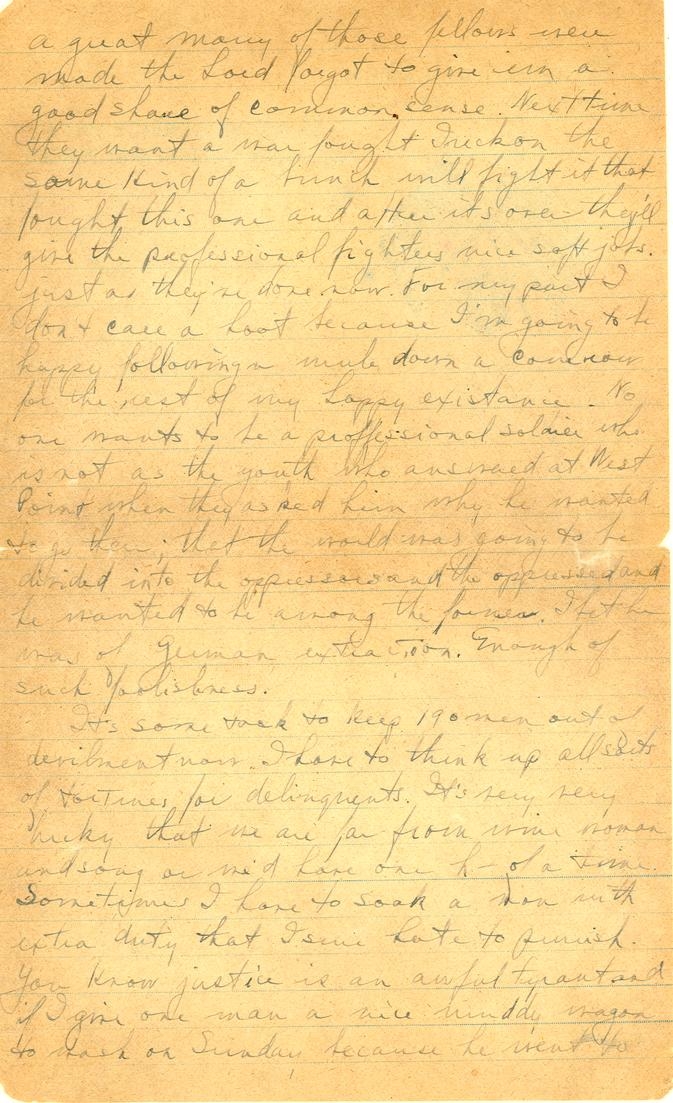 a great many of those fellows were
made the Lord forgot to give em a
good share of common sense. Next time
they want a war fought I reckon the
same kind of a bunch will fight it that
fought this one and after its over they'll
give the professional fighters nice soft jobs.
just as they're done now. For my part I
don't care a hoot because I'm going to be
happy following a mule down a corn row
for the rest of my happy existance. No
one wants to be a proffessional soldier who
is not as the youth who answered at West
Point when they asked him why he wanted
to go there; that the world was going to be
divided into the oppressors and the oppressed and
he wanted to be among the former. I bet he
was of German extraction. Enough of
such foolishness.
It's some task to keep 190 men out of
devilment now. I have to think up all sorts
of tortures for delinquents. It's very very
lucky that we are far from wine woman
and song or we'd have one h- of a time.
Sometimes I have to soak a man with
extra duty that I sure hate to punish.
You know justice is an awful tyrant and
if I give one man a nice muddy wagon
to wash on Sunday because he went to